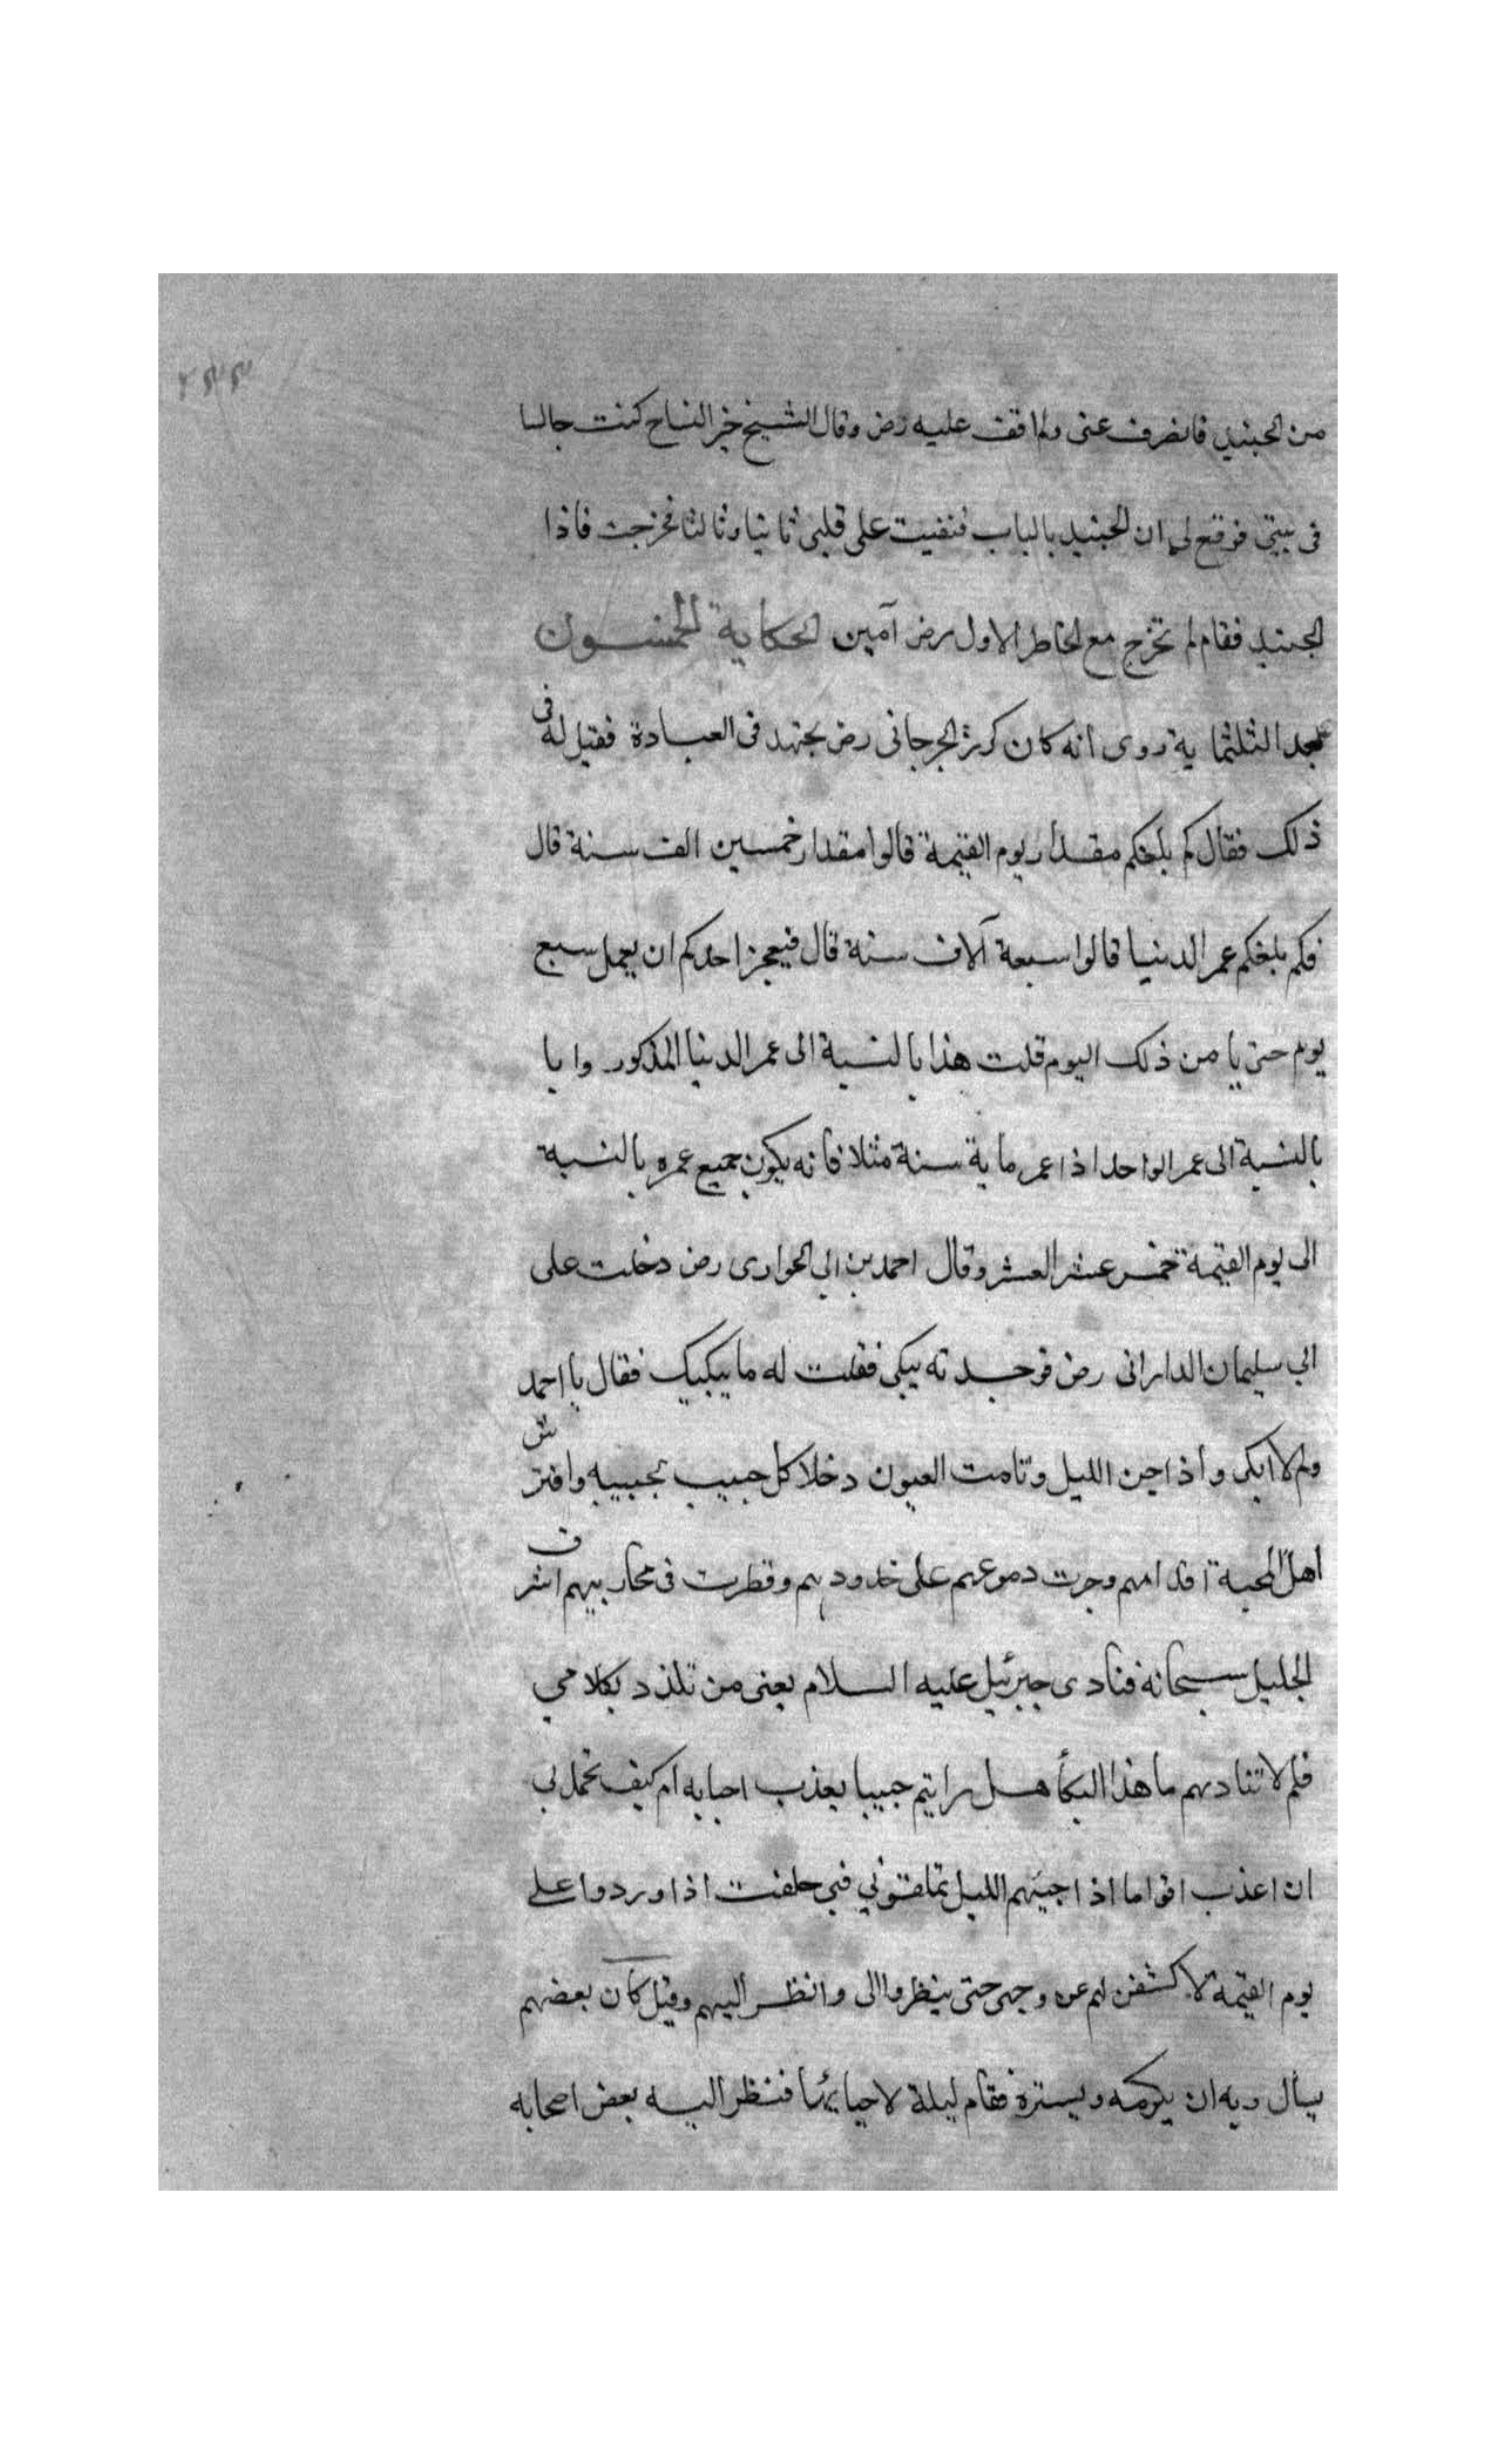 من الجنيد فانصرف عنى ولم اقف عليه رض وقال الشيخ خير النساج كنت جالسا
فى بيتي فوقع لى ان الجنيد بالباب فنفيت على قلبى ثانيا وثالثا فخرجت فاذا
الجنيد فقام لم تخرج مع الخاطر الاول رض آمين الحكاية الخمسون
بعد الثلثماية روى أنه كان كرز الجرجانى رض يجتهد فى العبادة فقيل له فى
ذلك فقال كم بلغكم مقدار يوم القيمة قالوا مقدار خمسين الف سنة قال
فكم بلغكم عمر الدنيا قالوا سبعة آلاف سنة قال فيعجز احدكم ان يعمل سبع
يوم حتى يامن ذلك اليوم قلت هذا بالنسبة الى عمر الدنيا المذكور وايا
بالنسبة الى عمر الواحد اذا عمر ماية سنة مثلا فانه يكون جميع عمره بالنسبة
الى يوم القيمة خمس عشر العشر وقال احمد بن ابي الحوارى رض دخلت على
ابي سليمان الدارانى رض فوجدته يبكى فقلت له ما يبكيك فقال يا احمد
ولم لا ابكى واذا جن الليل ونامت العيون وخلا كل حبيب بحبيبه وافترش
اهل المحبة اقدامهم وجرت دموعهم على خدودهم وقطرت فى محاريبهم اشرف
الجليل سبحانه فنادى جبرئيل عليه السلام بعنى من تلذذ بكلامي
فلم لا تناديهم ما هذا البكأ هل رايتم حبيبا يعذب احبابه ام كيف تحمل بي
ان اعذب اقواما اذا جنهم الليل تملقوني فبي حلفت اذا وردوا على
يوم القيمة لاكشفن لهم عن وجهى حتى ينظروا الى وانظر اليهم وقيل كان بعضهم
يسأل ربه ان يكرمه ويستره فقام ليلة لاحيائها فنظر اليه بعض اصحابه